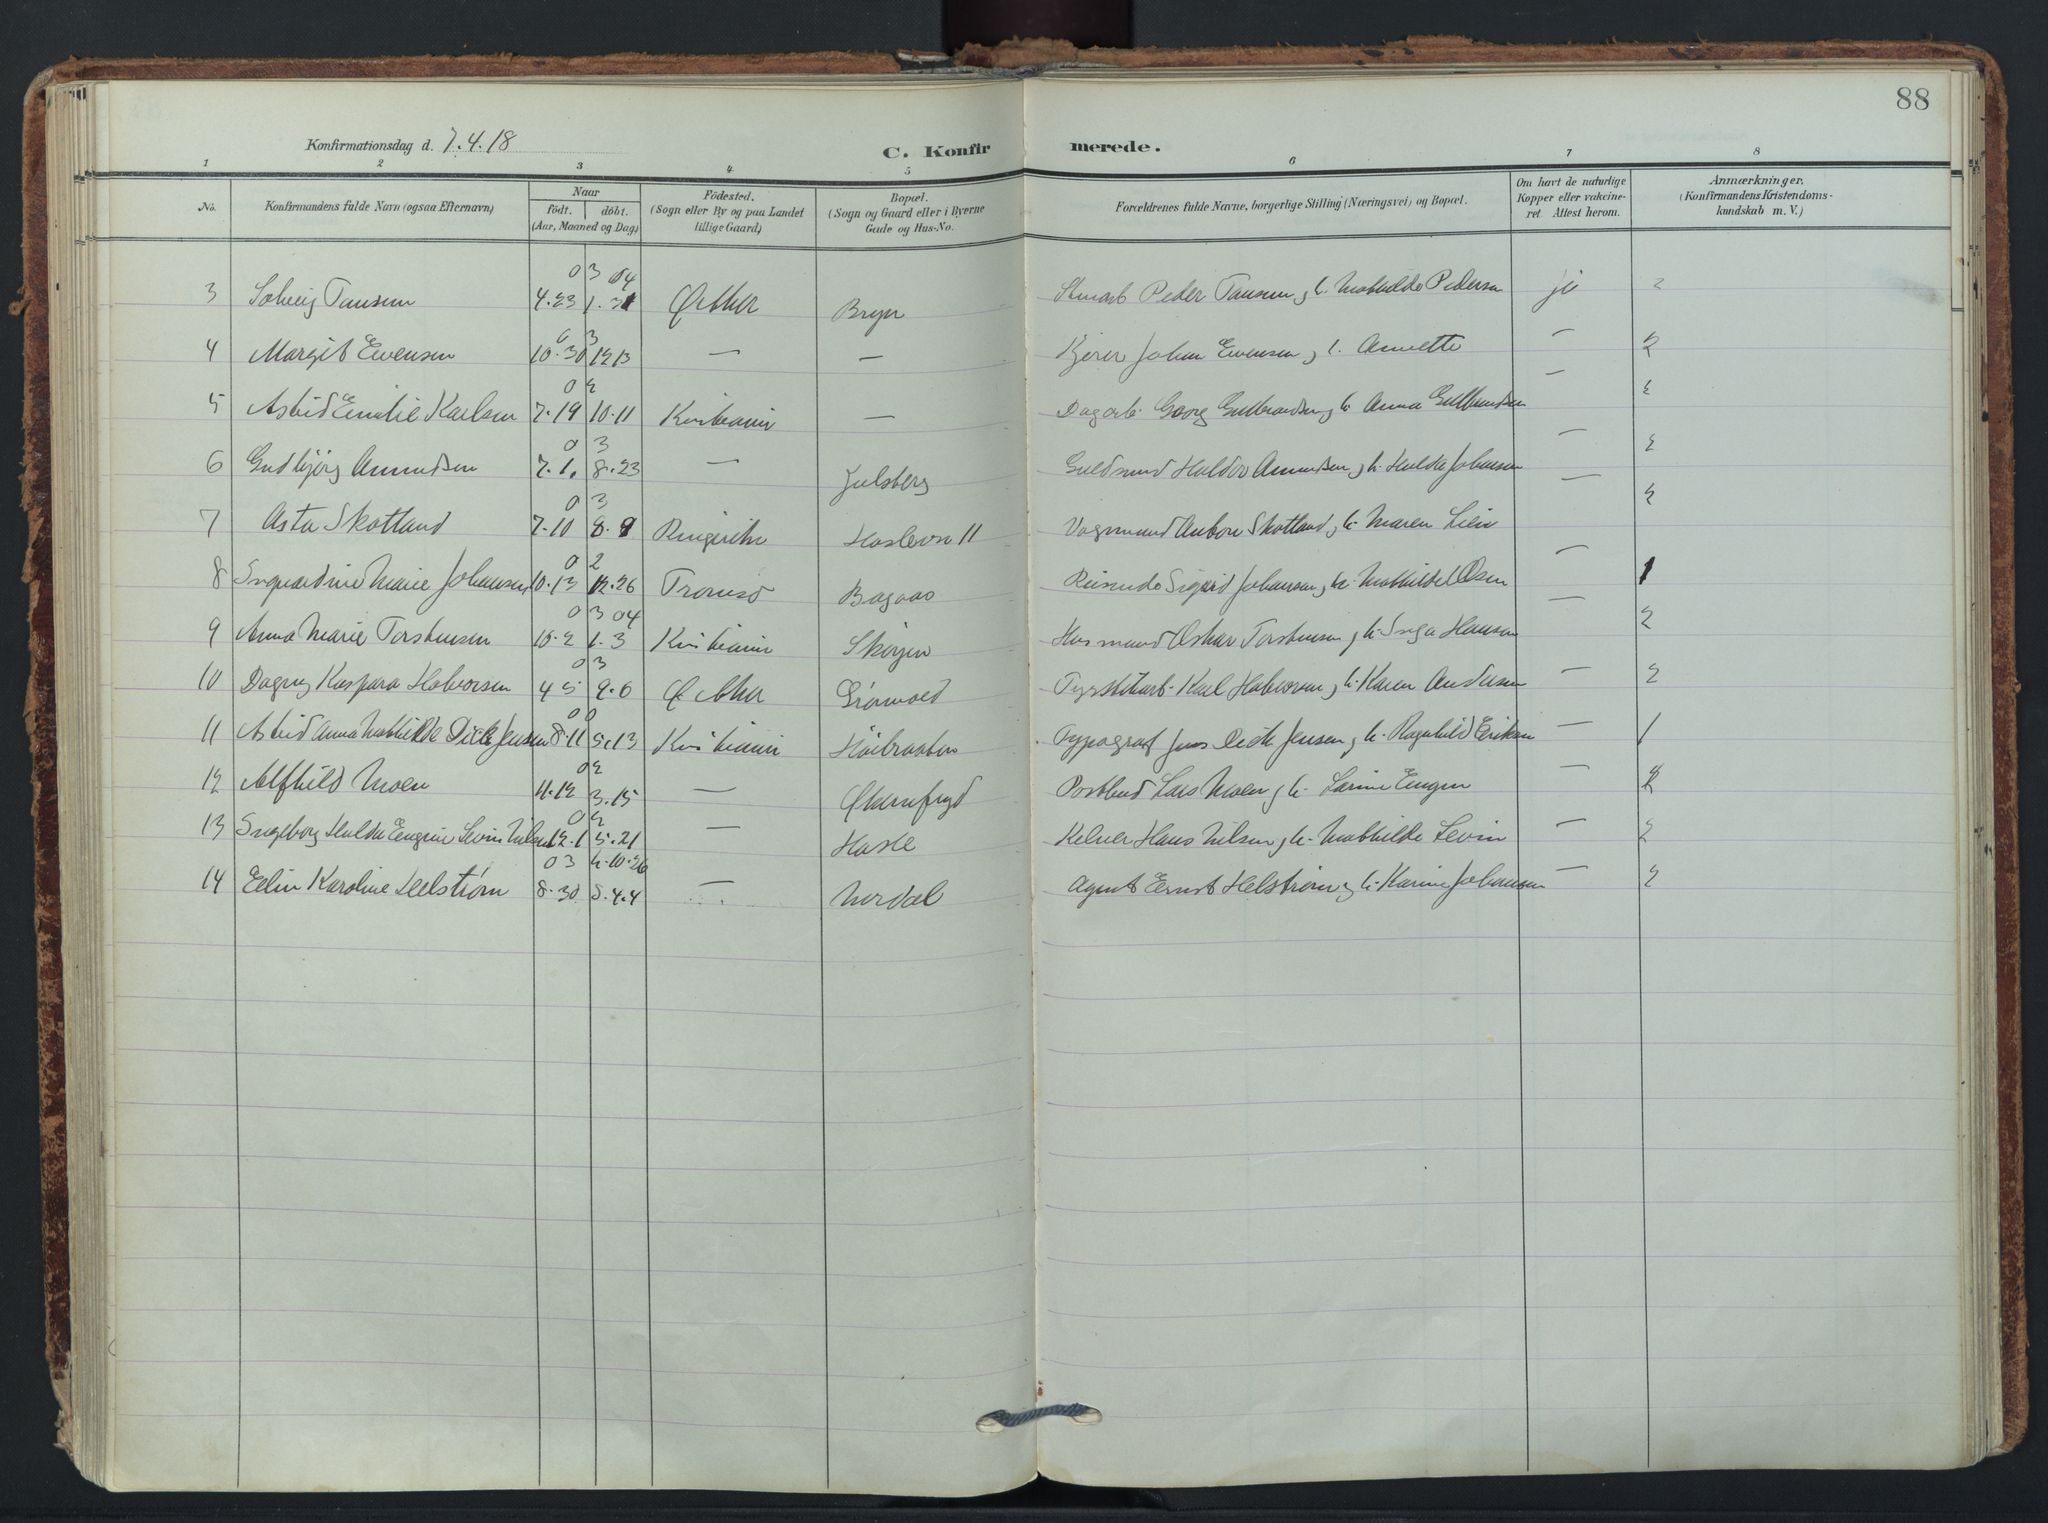 88
Konfirmationsdag d. 7.4.18
C. Konfirmerede.
1 2 3 4 5 6 7 8
No. Konfirmandens fulde Navn (ogsaa Efternavn) Naar født. døbt. (Aar, Maaned og Dag) Födested. (Sogn eller By og paa Landet tillige Gaard) Bopæl. (Sogn og Gaard eller i Byerne Gade og Hus-No. Forældrenes fulde Navne, borgerlige Stilling (Næringsvei) og Bopæl. Om havt de naturlige Kopper eller vakcineret Attest herom. Anmærkninger. (Konfirmandens Kristendomskundskab m. V.)
03 04
3 Solveig 4.23 1.31 Ø Aker Bryn Peder Mathilde Pedersen ja 2
03
4 Margit Evensen 10.30 12 13 — — Kjører Johan Evensen, h. Annette — 2
02
5 Astrid Emilie Karlsen 7.19 10.11 Kristiania — Dagarb. Georg Gulbrandsen, h. Anna Gulbrandsen — 2
03
6 Gudbjørg Amundsen 7.1. 8.23 — Julsberg Guldsmed Haldor Amundsen, h. Hulda Johansen — 2
03
7 Asta Skotland 7.10 8.9 Ringerike Haslevn 11 Vognmand Anton Skotland, h. Maren Lein — 2
02
8 Marie Johansen 10.13 12.26 Tromsø Bagaas Sigurd Johansen, h. Mathilde Olsen — 1
03 04
9 Anna Marie Torstensen 10.2 1.3 Kristiania Skøyen Oskar Torstensen, h. Inga Hansen — 2
03
10 Dagny Kaspara Halvorsen 4 5 9.6 Ø Aker Grønvold Karl Halvorsen, h. Karen Andersen — 2
11 Astrid Anna Mathilde Jensen 8.11 5.13 Kristiania Høibraaten Typograf Jens Jensen, h. Ragnhild Eriksen — 1
02
12 Alfhild Moen 11.12 3.15 — Økernfryd Postbud Lars Moen, h. Larine Engen — 2
02
13 Ingeborg Hulda Eugenie Levin Nilsen 12.1 5.21 — Hasle Kelner Hans Nilsen, h. Mathilde Levin — 2
03 h. 10.26
14 Edin Karoline Helstrøm 8.30 8.4.4 — Nordal Agent Ernst Helstrøm, h. Karine Johansen — 2